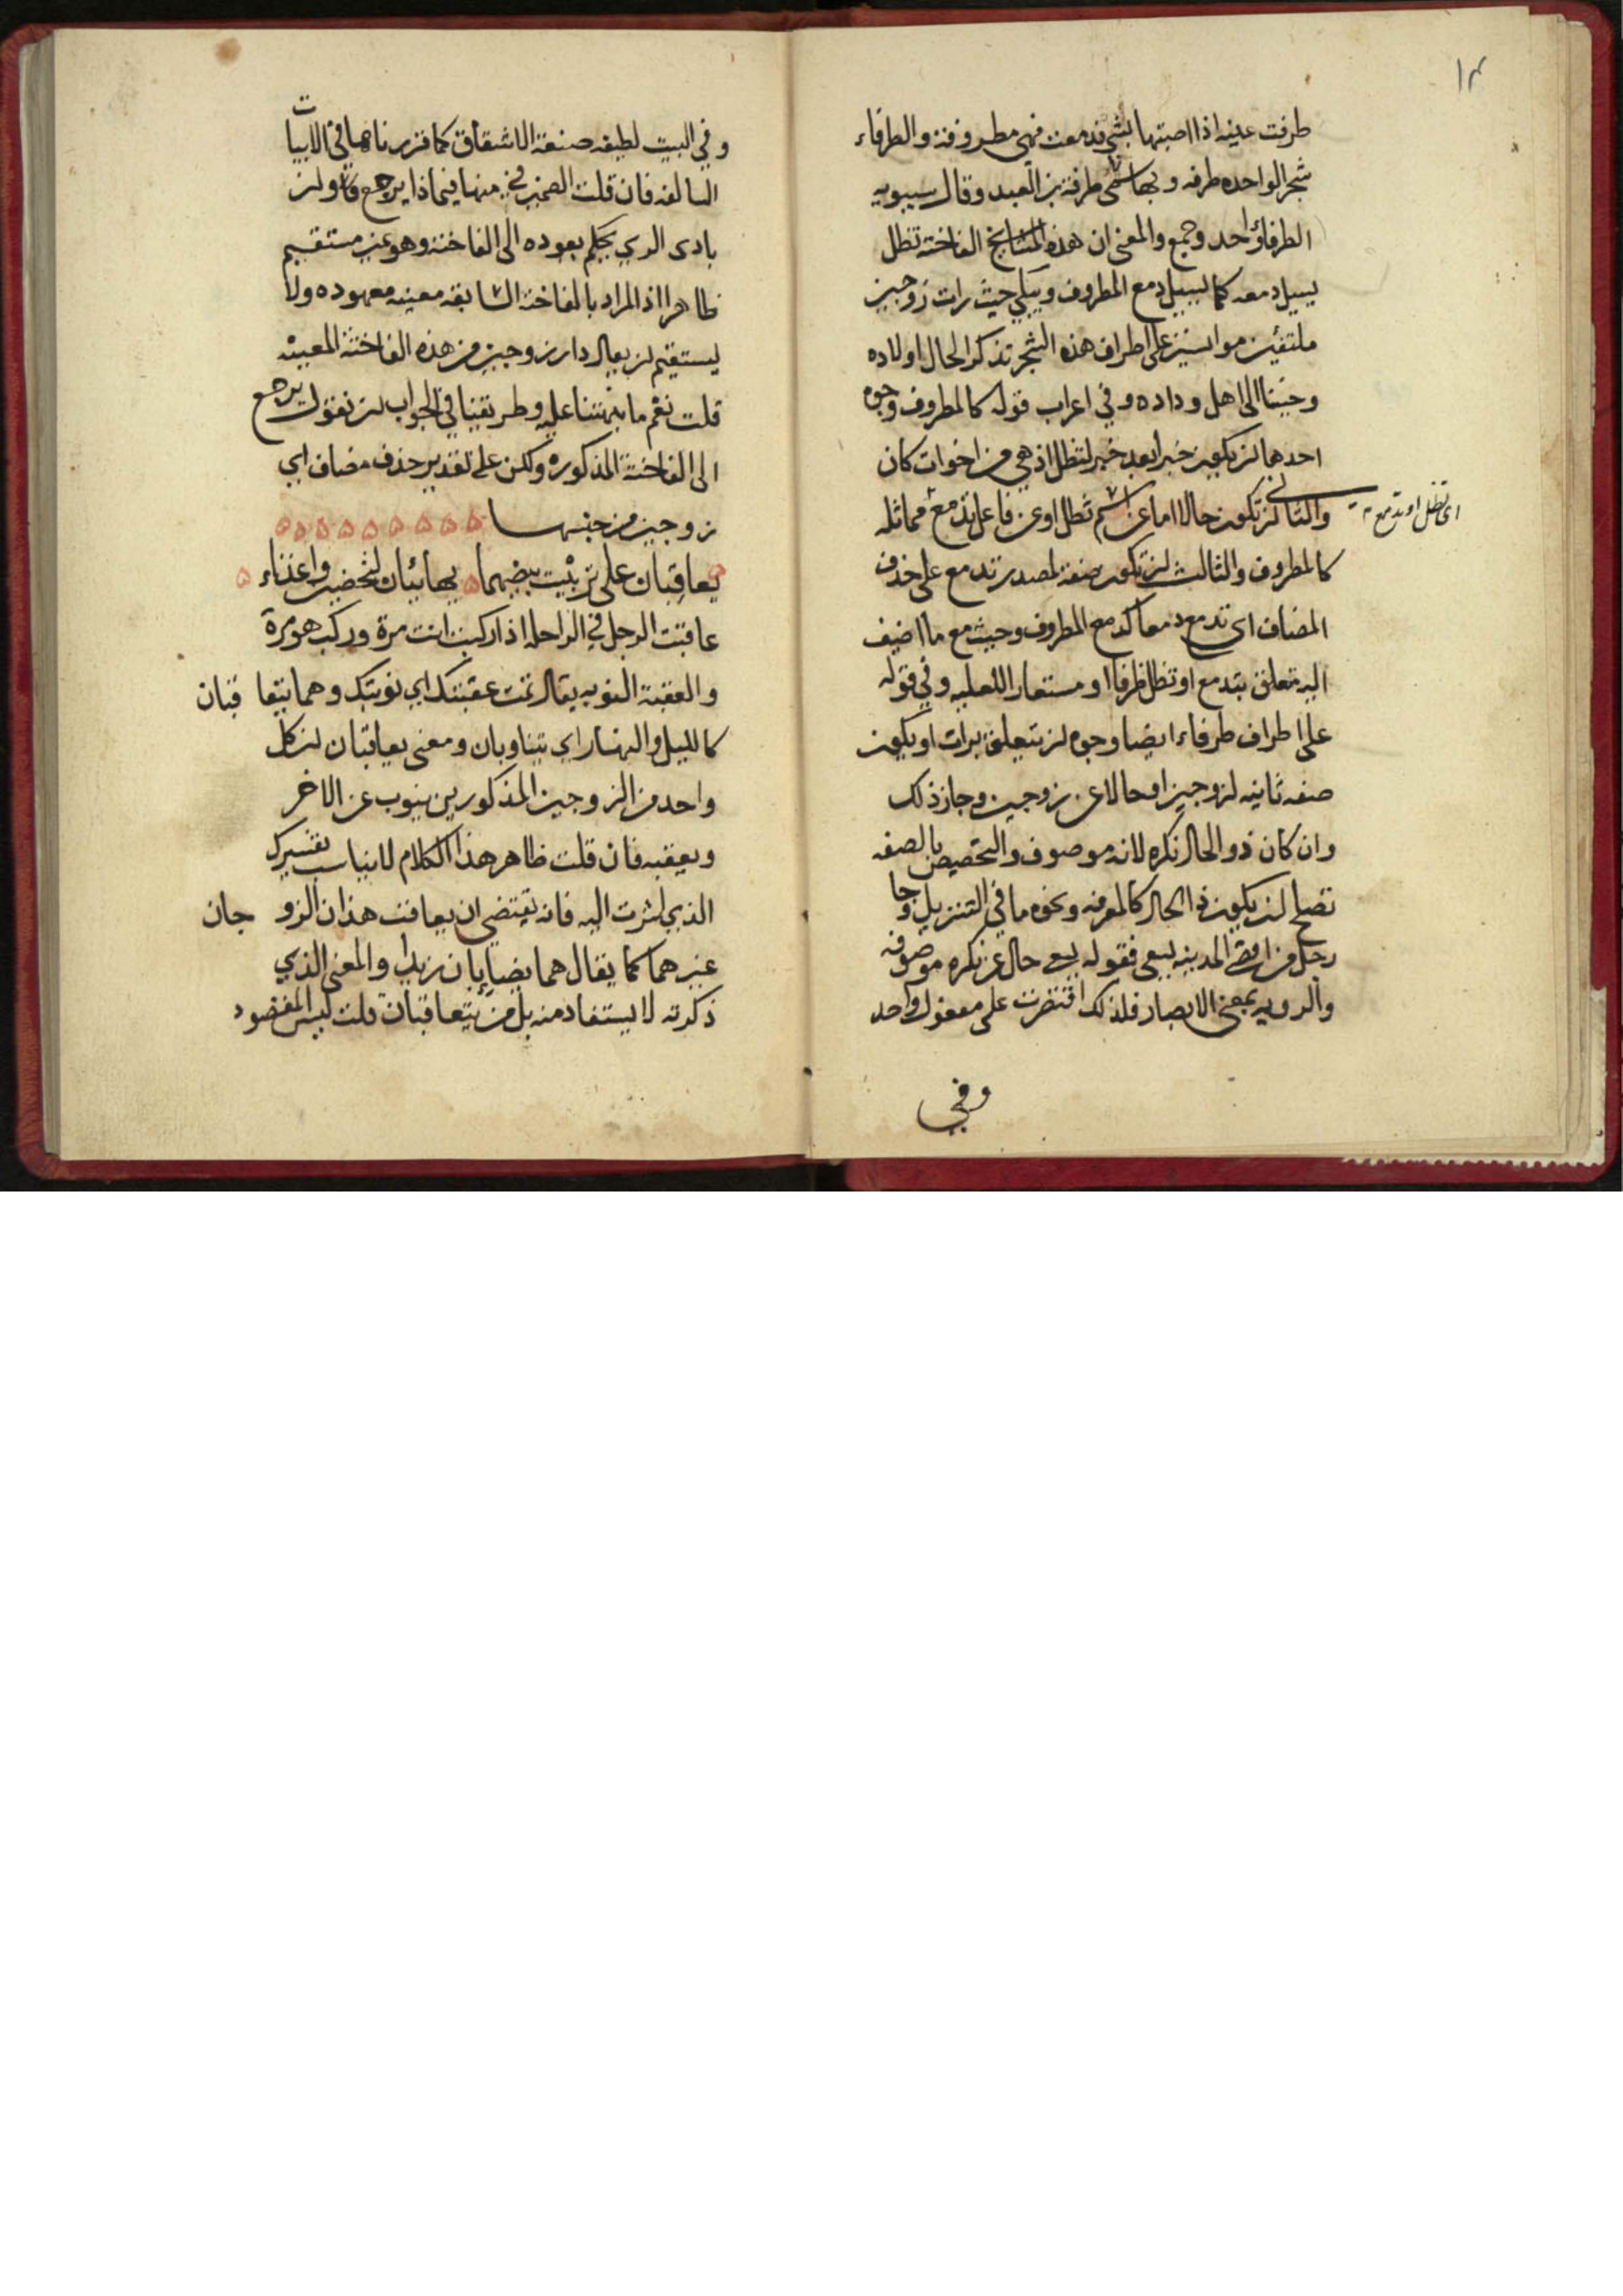 ١٣
طرفت عينه اذا اصبتها بشئ فدمعت فهي مطروفة والطرفاء
شجر الواحده طرفه وبها سمى طرفة بن العبد وقال سيبويه
الطرفاء واحد وجمع والمعنى ان هذه الفاخته تظل
يسيل دمعه كما يسيل دمع المطروف ويبكي حيث رات زوجين
ملتفين موانسين على اطراف هذه الشجر تذكر الحال اولاده
وحنينا الى اهل وداده وفي اعراب قوله كالمطروف وجوه
احدها ان يكون خبرا بعد خبر لتظل اذ هي من اخوات كان
والثاني ان تكون حالا اما عن اسم تظل او عن فاعل تدمع مماثله
اى تظل او تدمع
كالمطروف والثالث ان تكون صفة لمصدر تدمع على حذف
المضاف اى تدمع دمعا كدمع المطروف وحيث مع ما اضيف
اليه متعلق بتدمع او تظل ظرفا او مستعارا للعليه وفي قوله
على اطراف طرفاء ايضا وجوه ان يتعلق برات او يكون
صفه ثانيه لزوجين او حالا عن زوجين وجاز ذلك
وان كان ذو الحال نكره لانه موصوف والتخصيص بالصفه
تصلح ان يكون ذا الحال كالمعرفه ونحوه ما في التنزيل وجا
رجل من اقصى المدينه يسعى فقوله يسعى حال عن نكره موصوفه
والرويه بمعنى الابصار فلذلك اقتصرت على مفعول واحد
وفي
وفي البيت لطيفه صنعة الاشتقاق كما قررناها في الابيات
السالفه فان قلت الضمير في منها فيماذا يرجع فان اول
بادى الراي يحكم بعوده الى الفاخته وهو غير مستقيم
ظاهرا اذ المراد بالفاخته السابقه معينه معهوده ولا
يستقيم ان يقال دار زوجين من هذه الفاخته المعينه
قلت نعم ما نبهتنا عليه وطريقنا في الجواب ان نقول يرجع
الى الفاخته المذكوره ولكن على تقدير حذف مضاف اي
زوجين من جنسها
يعاقبان على تربيت بيضهما يهابئان لتحضين واغذاء
عاقبت الرجل في الراحله اذا ركبت انت مرة وركب هو مرة
والعقبة النوبه يقال تمت عقبتك اي نوبتك وهما يتعاقبان
كالليل والنهار اي يتناوبان ومعنى يعاقبان ان كل
واحد من الزوجين المذكورين ينوب عن الاخر
ويعقبه فان قلت ظاهر هذا الكلام لا يناسب تفسيرك
الذي اشرت اليه فانه يقتضى ان يعاقب هذان الزوجان
غيرهما كما يقال هما يضاربان زيدا والمعنى الذي
ذكرته لا يستفاد منه بل من يتعاقبان قلت ليس المقصود